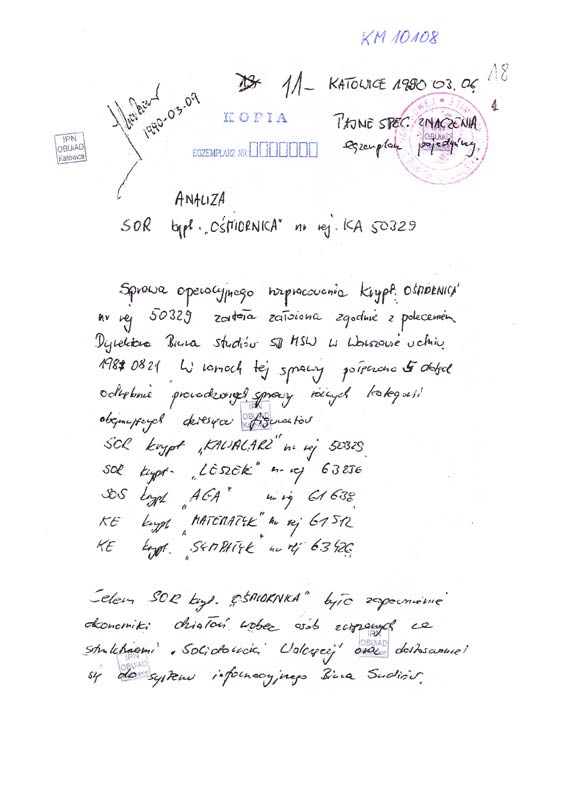 KM 10108
18
11- KATOWICE 1990 03.06
1990-03-09
KOPIA
TAJNE SPEC. ZNACZENIA
egzemplarz pojedynczy
EGZEMPLARZ NR
IPN
OBUiAD
Katowice
ANALIZA
SOR krypt. „OŚMIORNICA" nr rej. KA 50329
Sprawa operacyjnego rozpracowania krypt. OŚMIORNICA"
nr rej 50329 została założona zgodnie z poleceniem
Dyrektora Biura Studiów SB MSW w Warszawie w dniu
1987 08 21 W ramach tej sprawy połączono 5 dotąd
odrębnie prowadzonych sprawy różnych kategorii
obejmujących dziesięciu figurantów
SOR krypt „KAWALARZ" nr rej 50329
SOR krypt. „LESZEK" nr rej 63256
SOS krypt „AGA" nr rej 61638
KE krypt „MATEMATYK" nr rej 61512
KE krypt. „SYMPATYK" nr rej
Celem SOR krypt. „OŚMIORNICA" było zapewnienie
ekonomiki działań wobec osób związanych ze
strukturami „Solidarności Walczącej" oraz dostosowanie
się do systemu informacyjnego Biura Studiów.